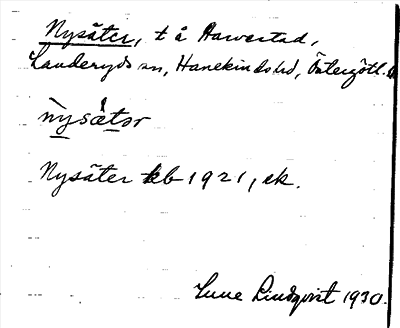 Nysäter, t å Harvestad,
Landeryds sn, Hanekinds hd, Östergötl.
nysätər
Nysäter kb 1921, ek.
Sune Lindqvist 1930.